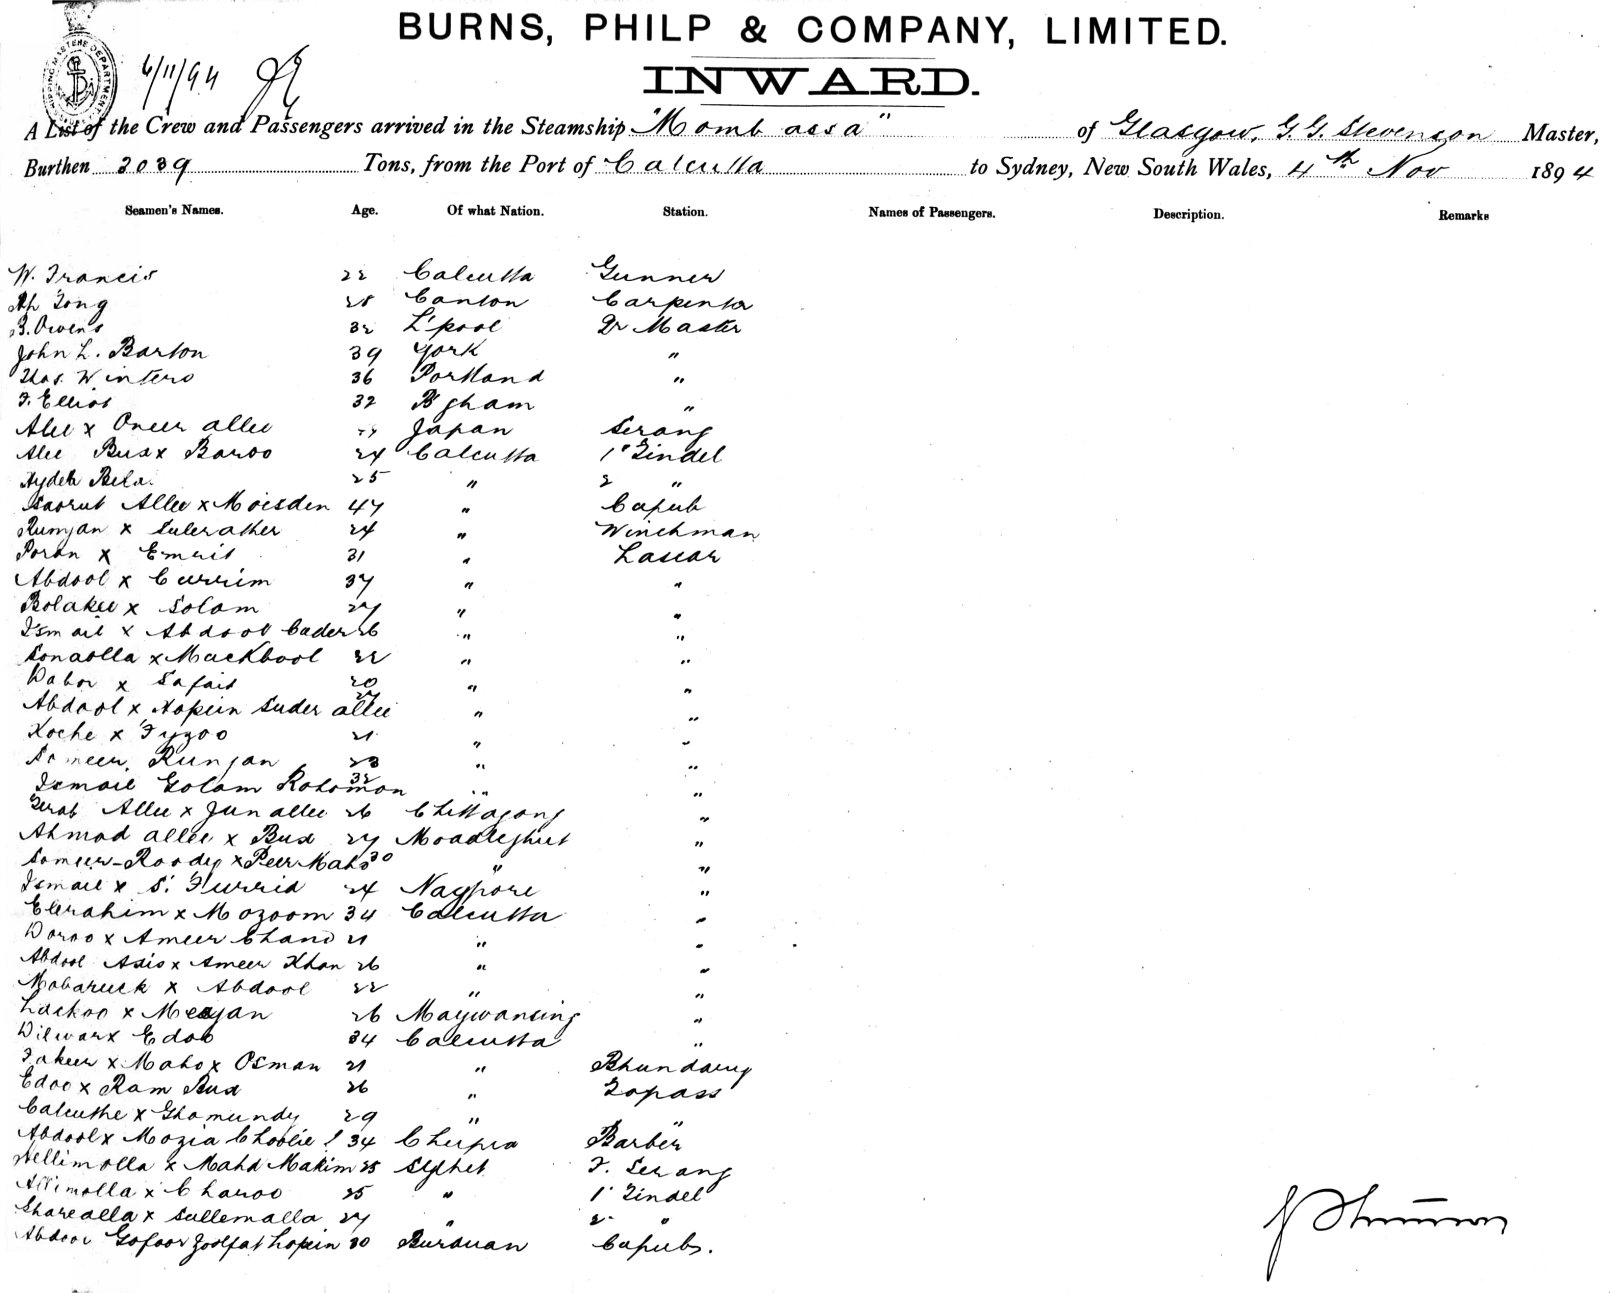 BURNS, PHILP & COMPANY, LIMITED.
INWARD.
6/11/94
A List of the Crew and Passengers arrived in the Steamship "Mombassa" of Glasgow, G. G. Stevenson Master,
Burthen 2039 Tons, from the Port of Calcutta to Sydney, New South Wales, 4th Nov 1894
Seamen's Names. Age. Of what Nation. Station. Names of Passengers. Description. Remarks
W. Francis 22 Calcutta Gunner
Ah Tong 28 Canton Carpenter
B. Owens 32 L'pool Qr Master
John L. Barton 39 York "
Thos. Winters 36 Portland "
F. Elliot 32 B'gham "
Alee x Oneer allee Japan Serang
Alee Bux x Baroo 24 Calcutta 1st Tindel
Hyder Bela. 25 " 2 "
Saorut Allee x Moisden 47 " Capub
Rumjan x Sulerather 24 " Winchman
Poran x Emrit 31 " Lascar
Abdool x Currim 37 " "
Bolakee x Solam 27 " "
Ismail x Abdool Cader 26 " "
Sonaolla x Mackbool 22 " "
Dabor x Safait 20 " "
Abdool x Hopein Suder allee 27 " "
Koche x Fyzoo 21 " "
Someer, Runjan 23 " "
Ismail Golam Rohomon 32 " "
Allee x Jun allee 26 Chittagong "
Ahmad allee x Bux 27 Moadleghut "
Someer-Roodey x Peer Maho 30 " "
Ismail x S. Furrid 24 Nagpore "
Ebrahim x Mozoom 34 Calcutta "
Doroo x Ameer Chand 21 " "
Abdool Asis x Ameer Khan 26 " "
Mobaruck x Abdool 22 " "
Lackoo x Meajan 26 Maywansing "
Dilwar x Edoo 34 Calcutta "
Fakeer x Maho x Osman 21 " Bhundary
Edoo x Ram Bux 26 " Topass
Calcuthe x Ghomundy 29 " "
Abdool x Mozia Choolie 34 Chupra Barber
Nellimolla x Mahd Makim 25 Sylhet F. Serang
Allimolla x Charoo 25 " 1st Tindel
Sharealla x Sullemalla 27 " 2 "
Abdoor Gofoor Zoolfat hopein 30 Burduan Capub.